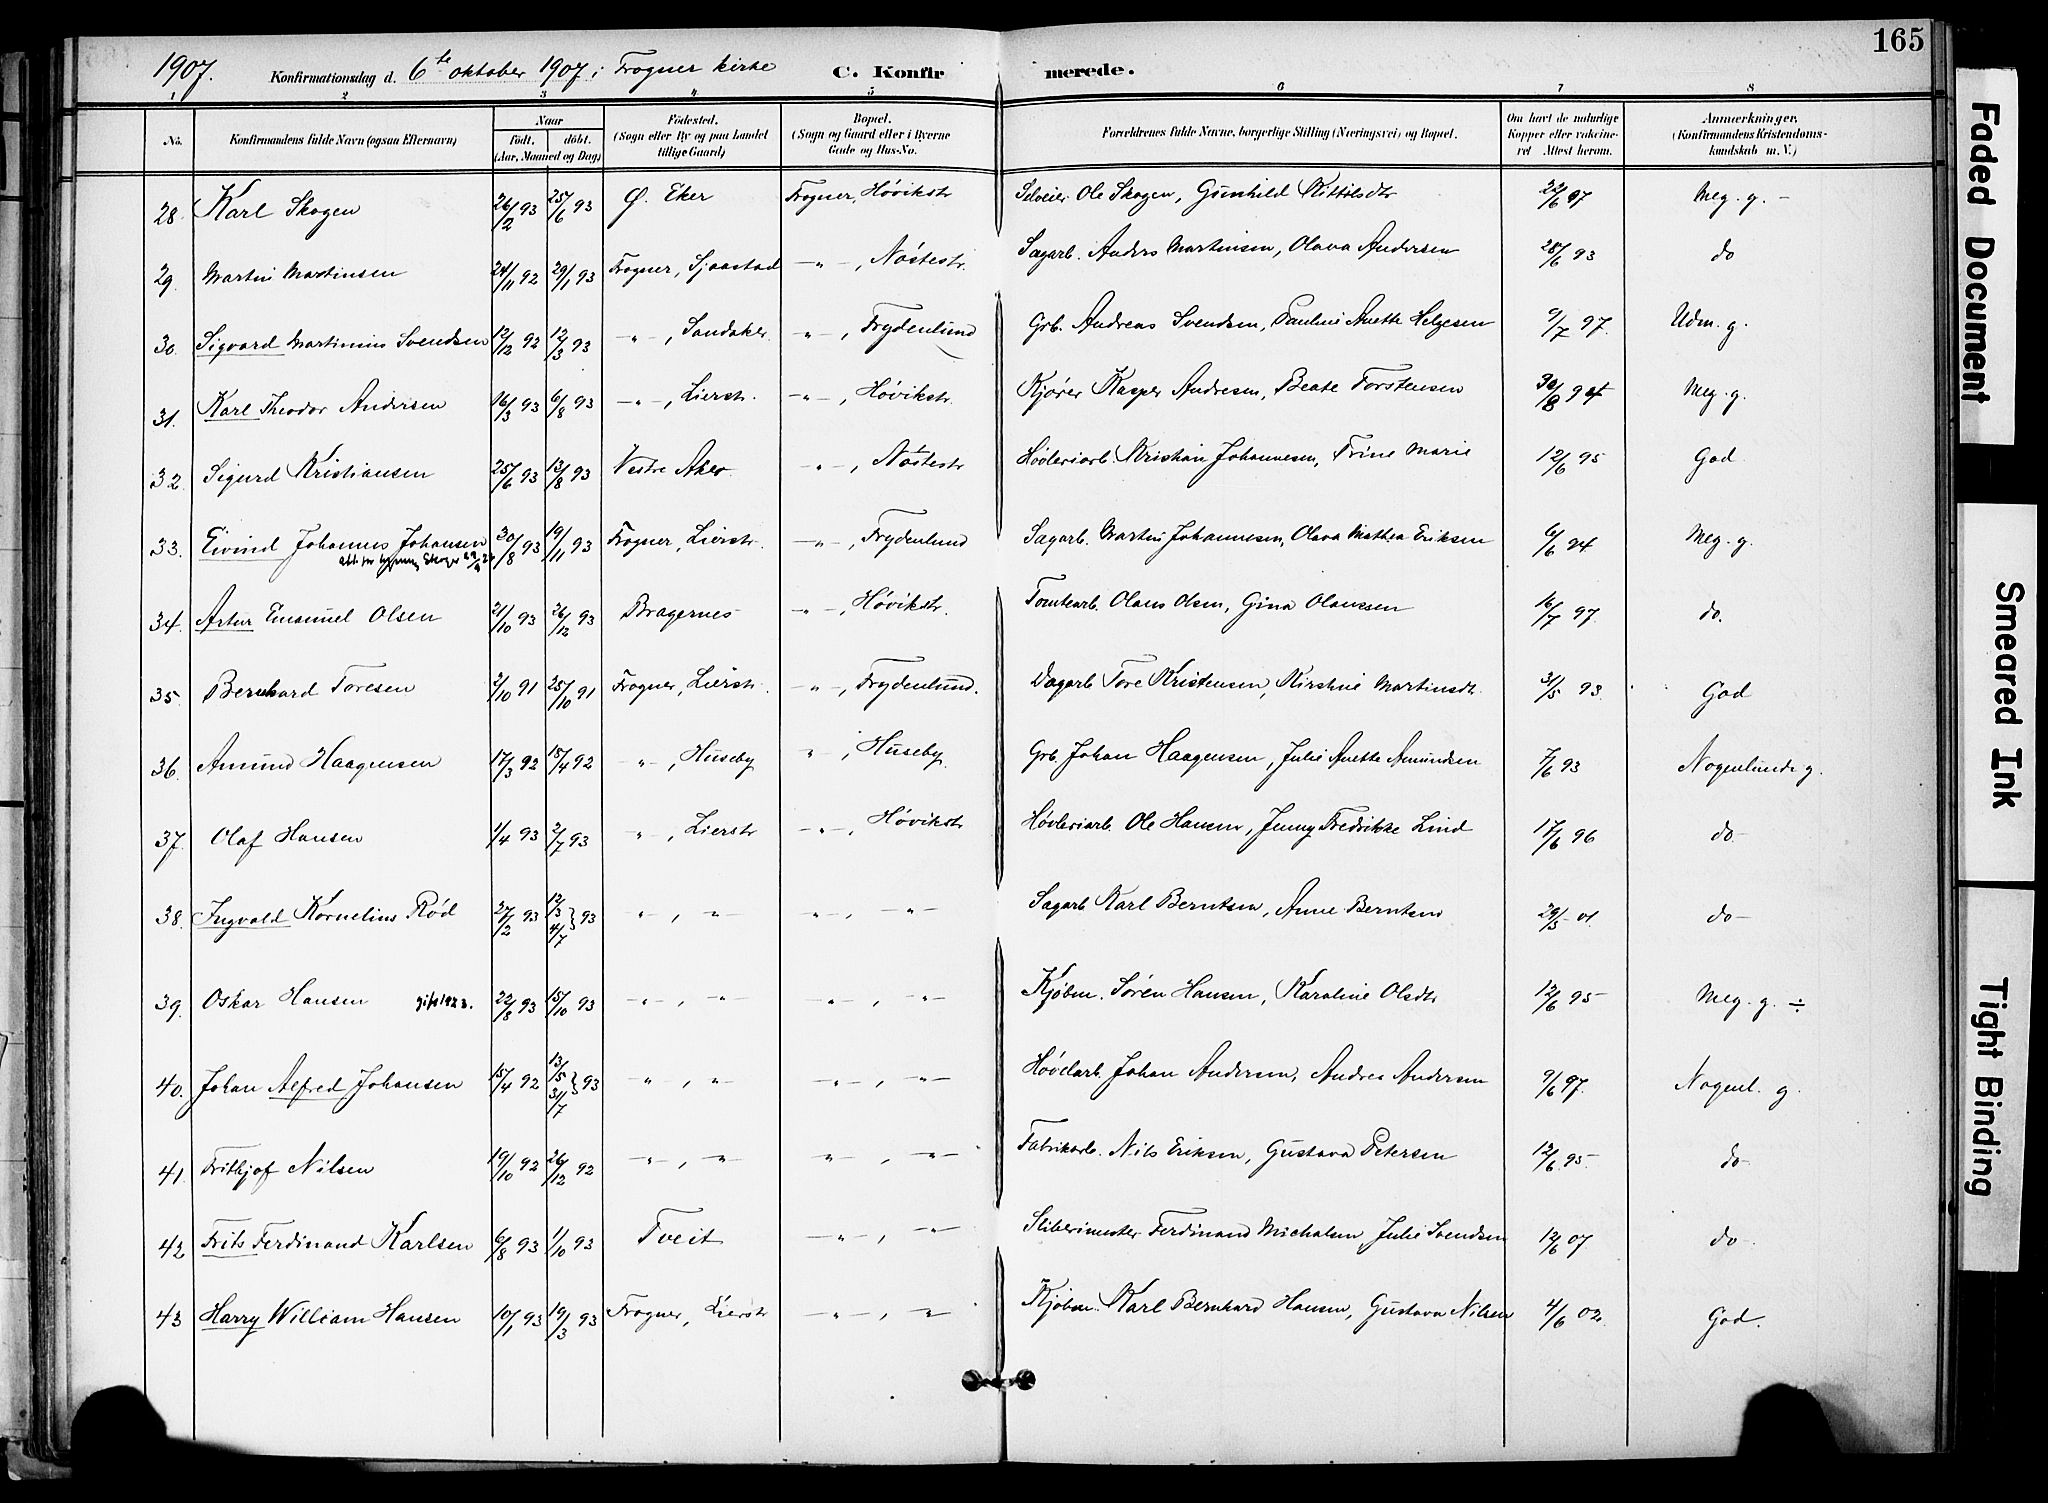 165
1907. Konfirmationsdag d. 6te oktober 1907 i Frogner kirke C. Konfirmerede.
1 2 3 4 5 6 7 8
No. Konfirmandens fulde Navn (ogsaa Efternavn) Naar Født. døbt. (Aar, Maaned og Dag) Fødested. (Sogn eller By og paa Landet tillige Gaard) Bopæl. (Sogn og Gaard eller i Byerne Gade og Hus-No. Forældrenes fulde Navne, borgerlige Stilling (Næringsvei) og Bopæl. Om havt de naturlige Kopper eller vaccineret Attest herom. Anmærkninger, (Konfirmandens Kristendomskundskab m. V.)
28. Karl Skogen 26/2 93 25/6 93 Ø. Eker Frogner, Høvikstr Selveier Ole Skogen, Gunhild Kittilsdtr 22/6 97 Meg. g. -
29. Martin Martinsen 24/11 92 29/1 93 Frogner, Sjaastad -"-, Nøstestr. Sagarb. Anders Martinsen, Olava Andersen 28/6 93 do
30. Sigvard Martinius Svendsen 12/12 92 12/3 93 -"-, Sandaker -"-, Frydenlund Grb. Andreas Svendsen, Pauline Anette Helgesen 9/7 97. Udm. g.
31. Karl Theodor Andersen 16/3 93 6/8 93 -"-, Lierstr. -"-, Høvikstr. Kjører Kasper Andresen, Beate Torstensen 30/8 94 Meg. g.
32. Sigurd Kristiansen 25/6 93 13/8 93 Vestre Aker -"-, Nøstestr Høvleriarb. Kristian Johannesen, Trine Marie 12/6 95 God
33. Eivind Johannes Johansen 30/8 93 19/11 93 Frogner, Lierstr. -"-, Frydenlund Sagarb. Martin Johannesen, Olava Mathea Eriksen 6/6 94 Meg. g.
34. Artur Emanuel Olsen 21/10 93 26/12 93 Bragernes -"-, Høvikstr. Tomtearb. Olaus Olsen, Gina Olaussen 16/7 97. do.
35. Bernhard Toresen 2/10 91 25/10 91 Frogner, Lierstr. -"-, Frydenlund. Dagarb Tore Kristensen, Kirstine Martinsdtr. 31/5 93. God
36. Amund Haagensen 17/3 92 18/4 92 "-, Huseby ", Huseby Grb. Johan Haagensen, Julie Anette Amundsen 7/6 93 Nogenlunde g.
37. Olaf Hansen 1/4 93 2/7 93 "-, Lierstr -"-, Høvikstr Høvleriarb. Ole Hansen, Jenny Fredrikke Lind 17/6 96 do-
38. Ingvald Kornelius Rød 27/2 93 12/3 4/7 } 93 "-, "- "-, -"- Sagarb Karl Berntsen, Anne Berntsen 29/5 01 do-
39. Oskar Hansen gift 1923. 22/8 93 15/10 93 -"-, "- -"-, "- Kjøbm. Søren Hansen, Karoline Olsdtr 12/6 95 Meg. g. ÷
40. Johan Alfred Johansen 15/4 92 13/5 31/7 } 93 -"-, "- -"-, -"- Høvlarb. Johan Andersen, Andrea Andersen 9/6 97. Nogenl. g.
41. Frithjof Nilsen 19/10 92 26/12 92 -"-, "- "-, -"- Fabrikarb. Nils Eriksen, Gustava Petersen 12/6 95 do
42. Frits Ferdinand Karlsen 6/8 93 1/10 93 Tveit -"-, "- Sliberimester Ferdinand Michalsen, Julie Svendsen 12/6 07 do
43 Harry William Hansen 10/1 93 19/3 93 Frogner, Lierstr -"-, "- Kjøbm. Karl Bernhard Hansen, Gustava Nilsen 4/6 02. God.
Faded Document
Smeared Ink
Tight Binding